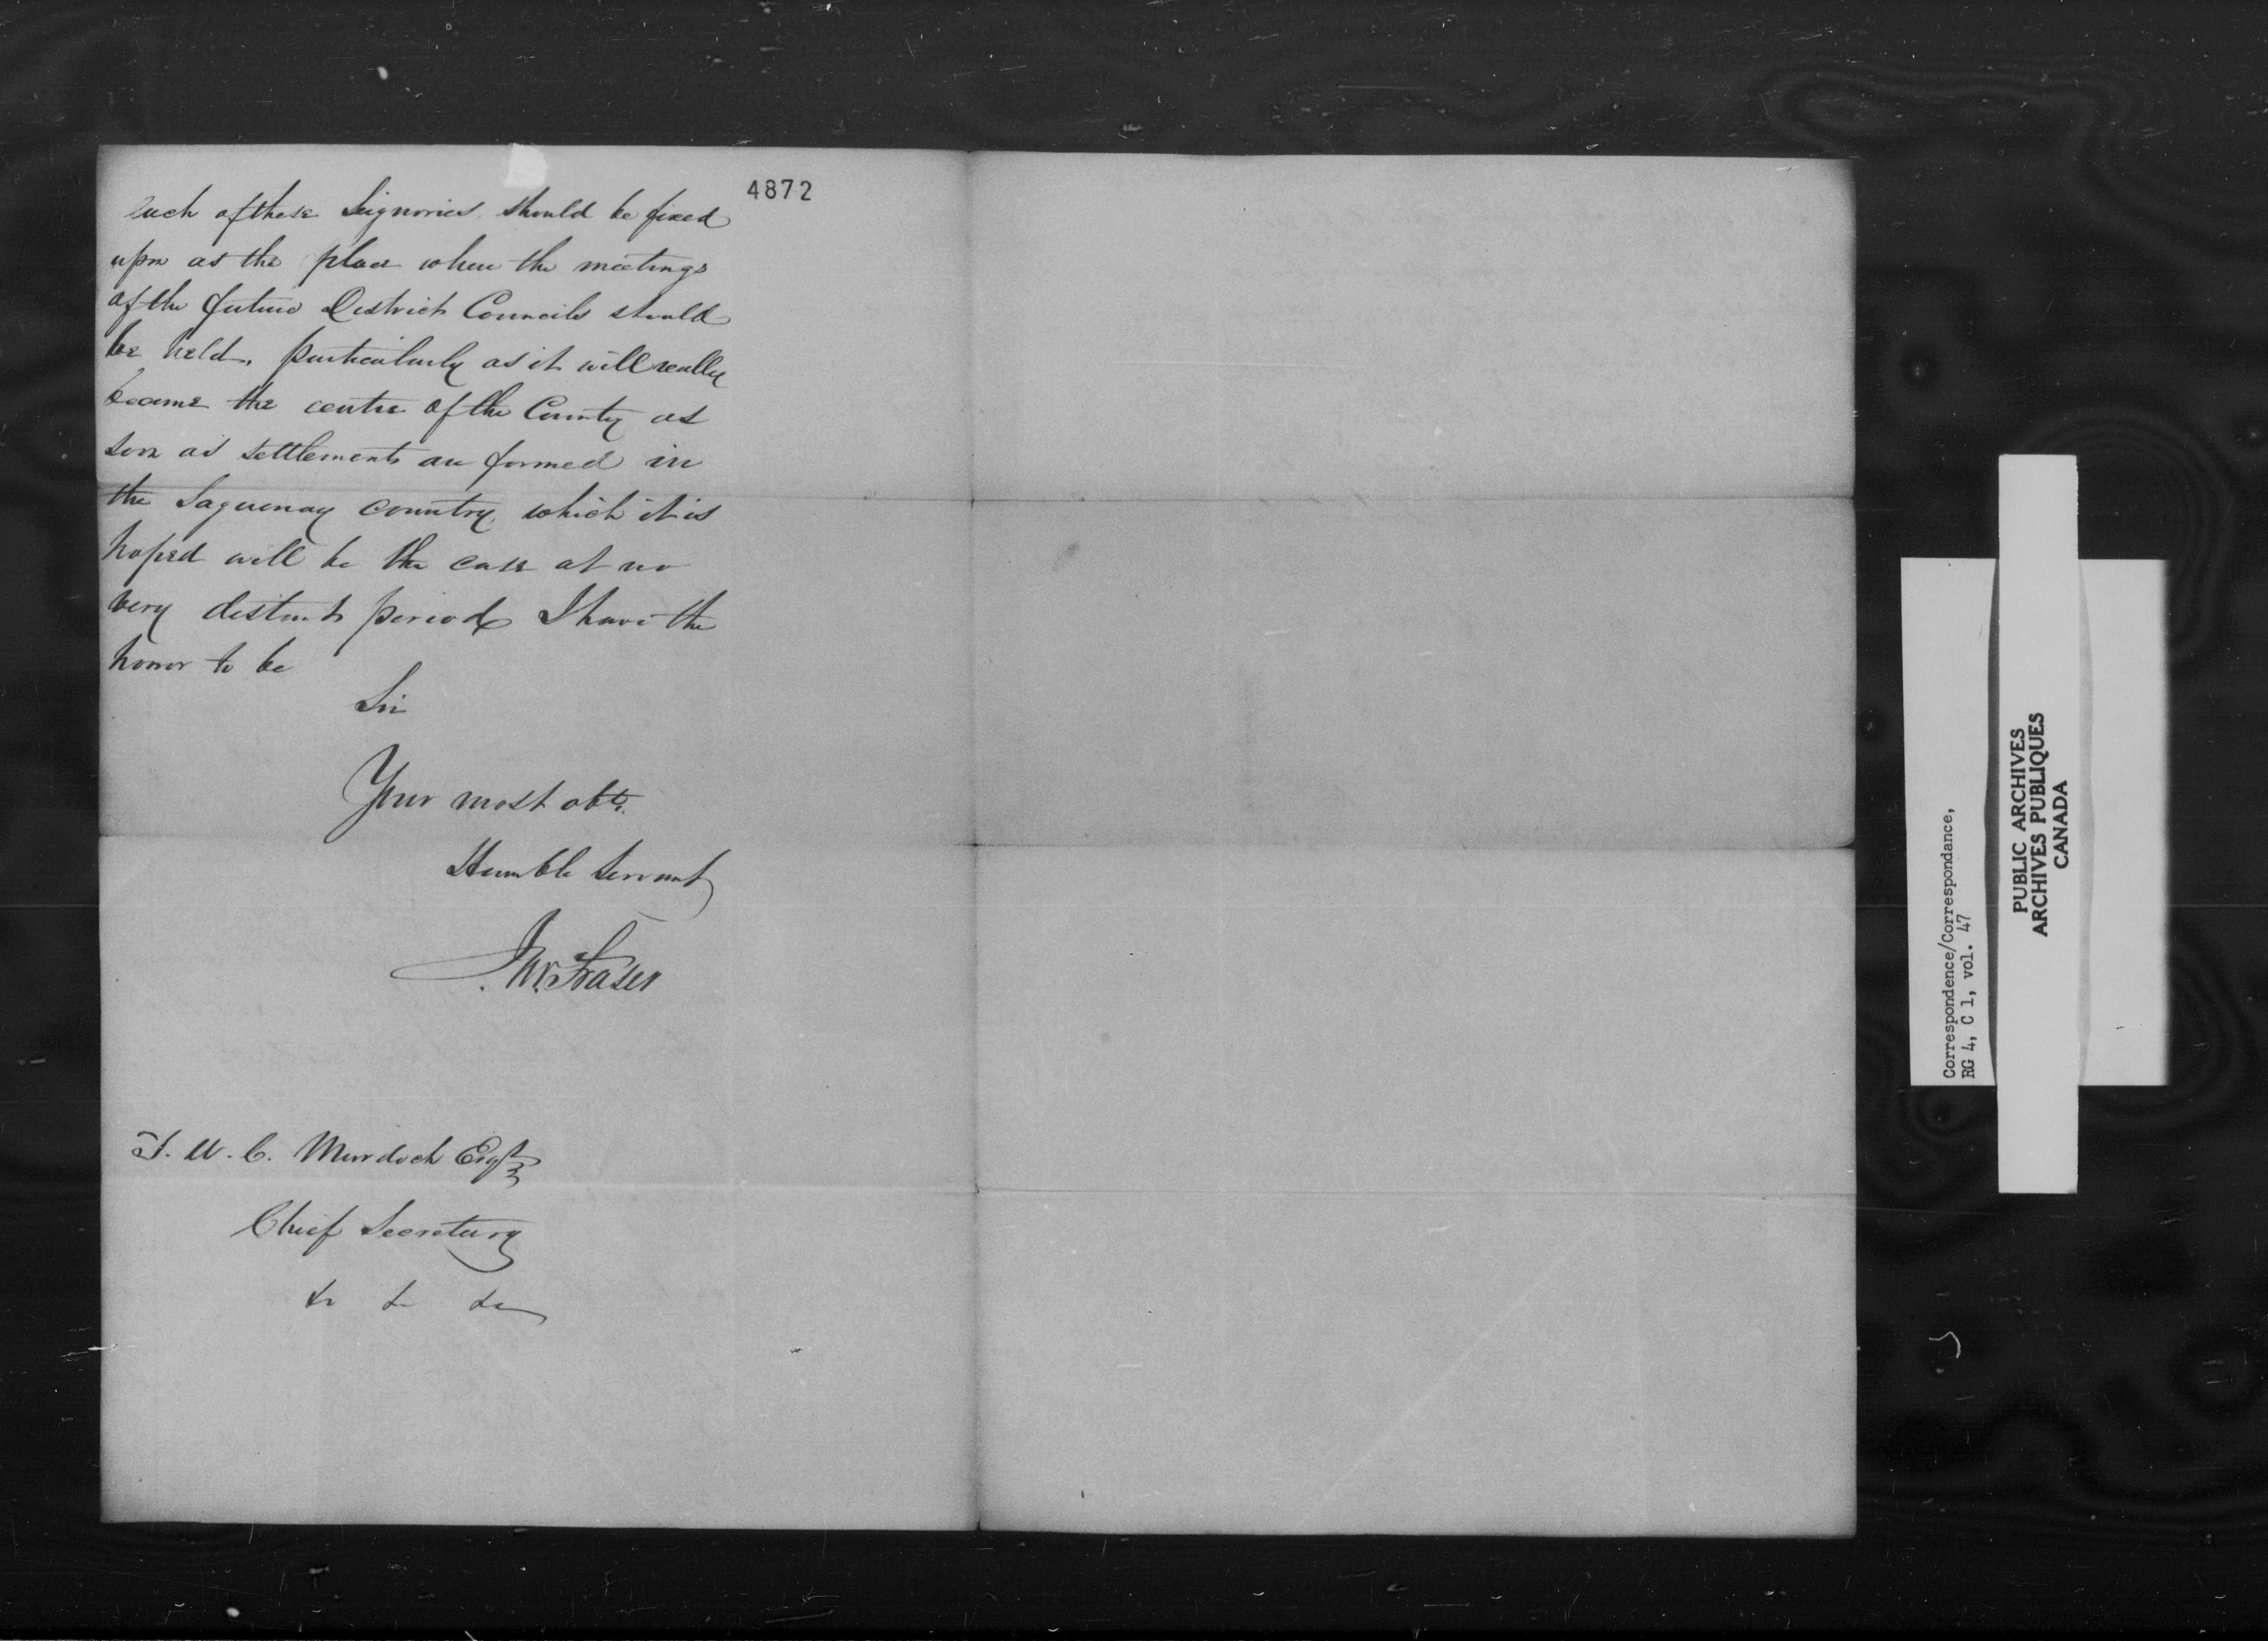 4872
each of these Seignories, should be fixed
upon as the place where the meetings
of the future District Councils should
be held, particularly as it will really
become the centre of the County as
soon as settlements are formed in
the Saguenay country, which it is
hoped will be the case at no
very distant period I have the
honor to be
Sir
Your most obt.
Humble Servant
J. W. Fraser
T. W. C. Murdoch Esqr
Chief Secretary
&c &c &c
Correspondence/Correspondance,
RG 4, C 1, vol. 47
PUBLIC ARCHIVES
ARCHIVES PUBLIQUES
CANADA